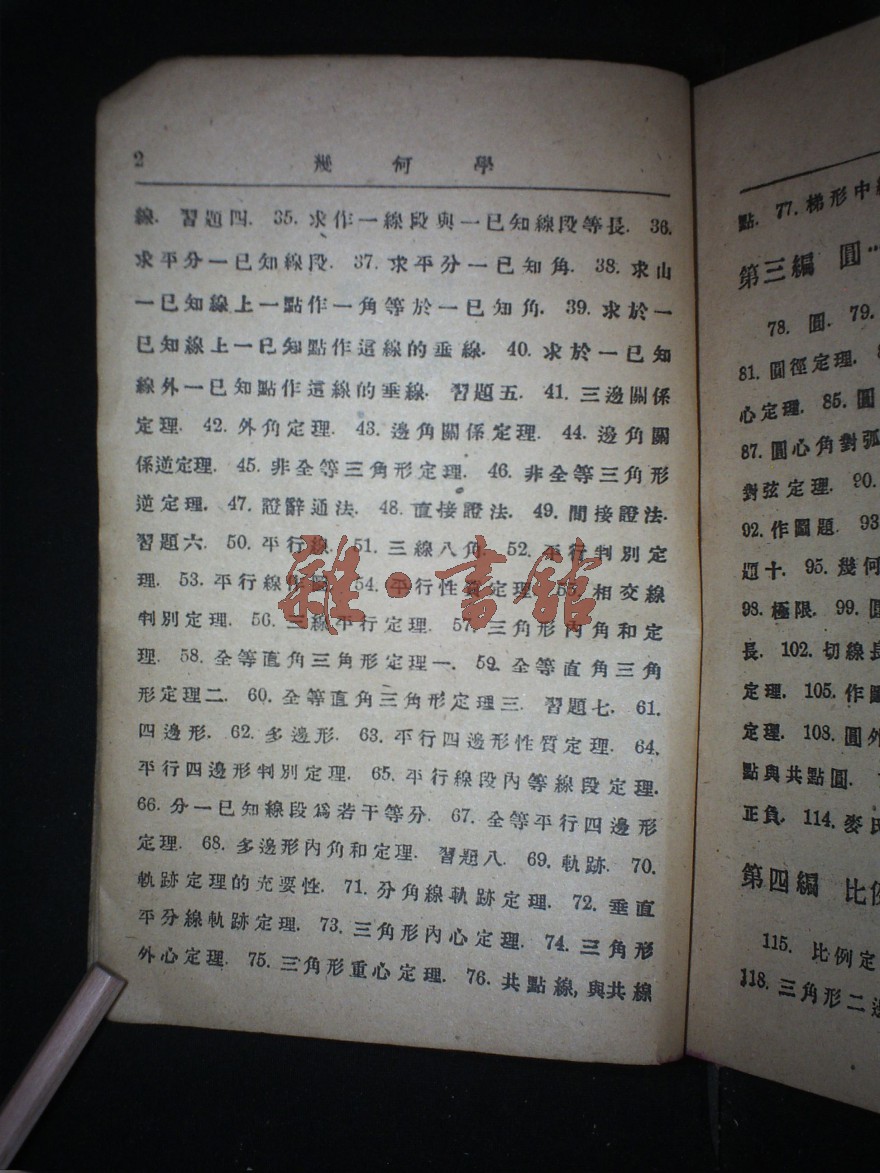 2 幾何學
線. 習題四. 35. 求作一線段與一已知線段等長. 36.
求平分一已知線段. 37. 求平分一已知角. 38. 求由
一已知線上一點作一角等於一已知角. 39. 求於一
已知線上一已知點作這線的垂線. 40. 求於一已知
線外一已知點作這線的垂線. 習題五. 41. 三邊關係
定理. 42. 外角定理. 43. 邊角關係定理. 44. 邊角關
係逆定理. 45. 非全等三角形定理. 46. 非全等三角形
逆定理. 47. 證辭通法. 48. 直接證法. 49. 間接證法.
習題六. 50. 平行線. 51. 三線八角. 52. 平行判別定
理. 53. 平行線作圖. 54. 平行性質定理. 55. 相交線
判別定理. 56. 三線平行定理. 57. 三角形內角和定
理. 58. 全等直角三角形定理一. 59. 全等直角三角
形定理二. 60. 全等直角三角形定理三. 習題七. 61.
四邊形. 62. 多邊形. 63. 平行四邊形性質定理. 64.
平行四邊形判別定理. 65. 平行線段內等線段定理.
66. 分一已知線段爲若干等分. 67. 全等平行四邊形
定理. 68. 多邊形內角和定理. 習題八. 69. 軌跡. 70.
軌跡定理的充要性. 71. 分角線軌跡定理. 72. 垂直
平分線軌跡定理. 73. 三角形內心定理. 74. 三角形
外心定理. 75. 三角形重心定理. 76. 共點線, 與共線
雜·書館
點. 77. 梯形中
第三編 圓
78. 圓. 79.
81. 圓徑定理.
心定理. 85. 圓
87. 圓心角對弧
對弦定理. 90.
92. 作圖題. 93
題十. 95. 幾何
98. 極限. 99.
長. 102. 切線長
定理. 105. 作圖
定理. 108. 圓外
點與共點圓.
正負. 114. 麥氏
第四編 比例
115. 比例定
118. 三角形二邊